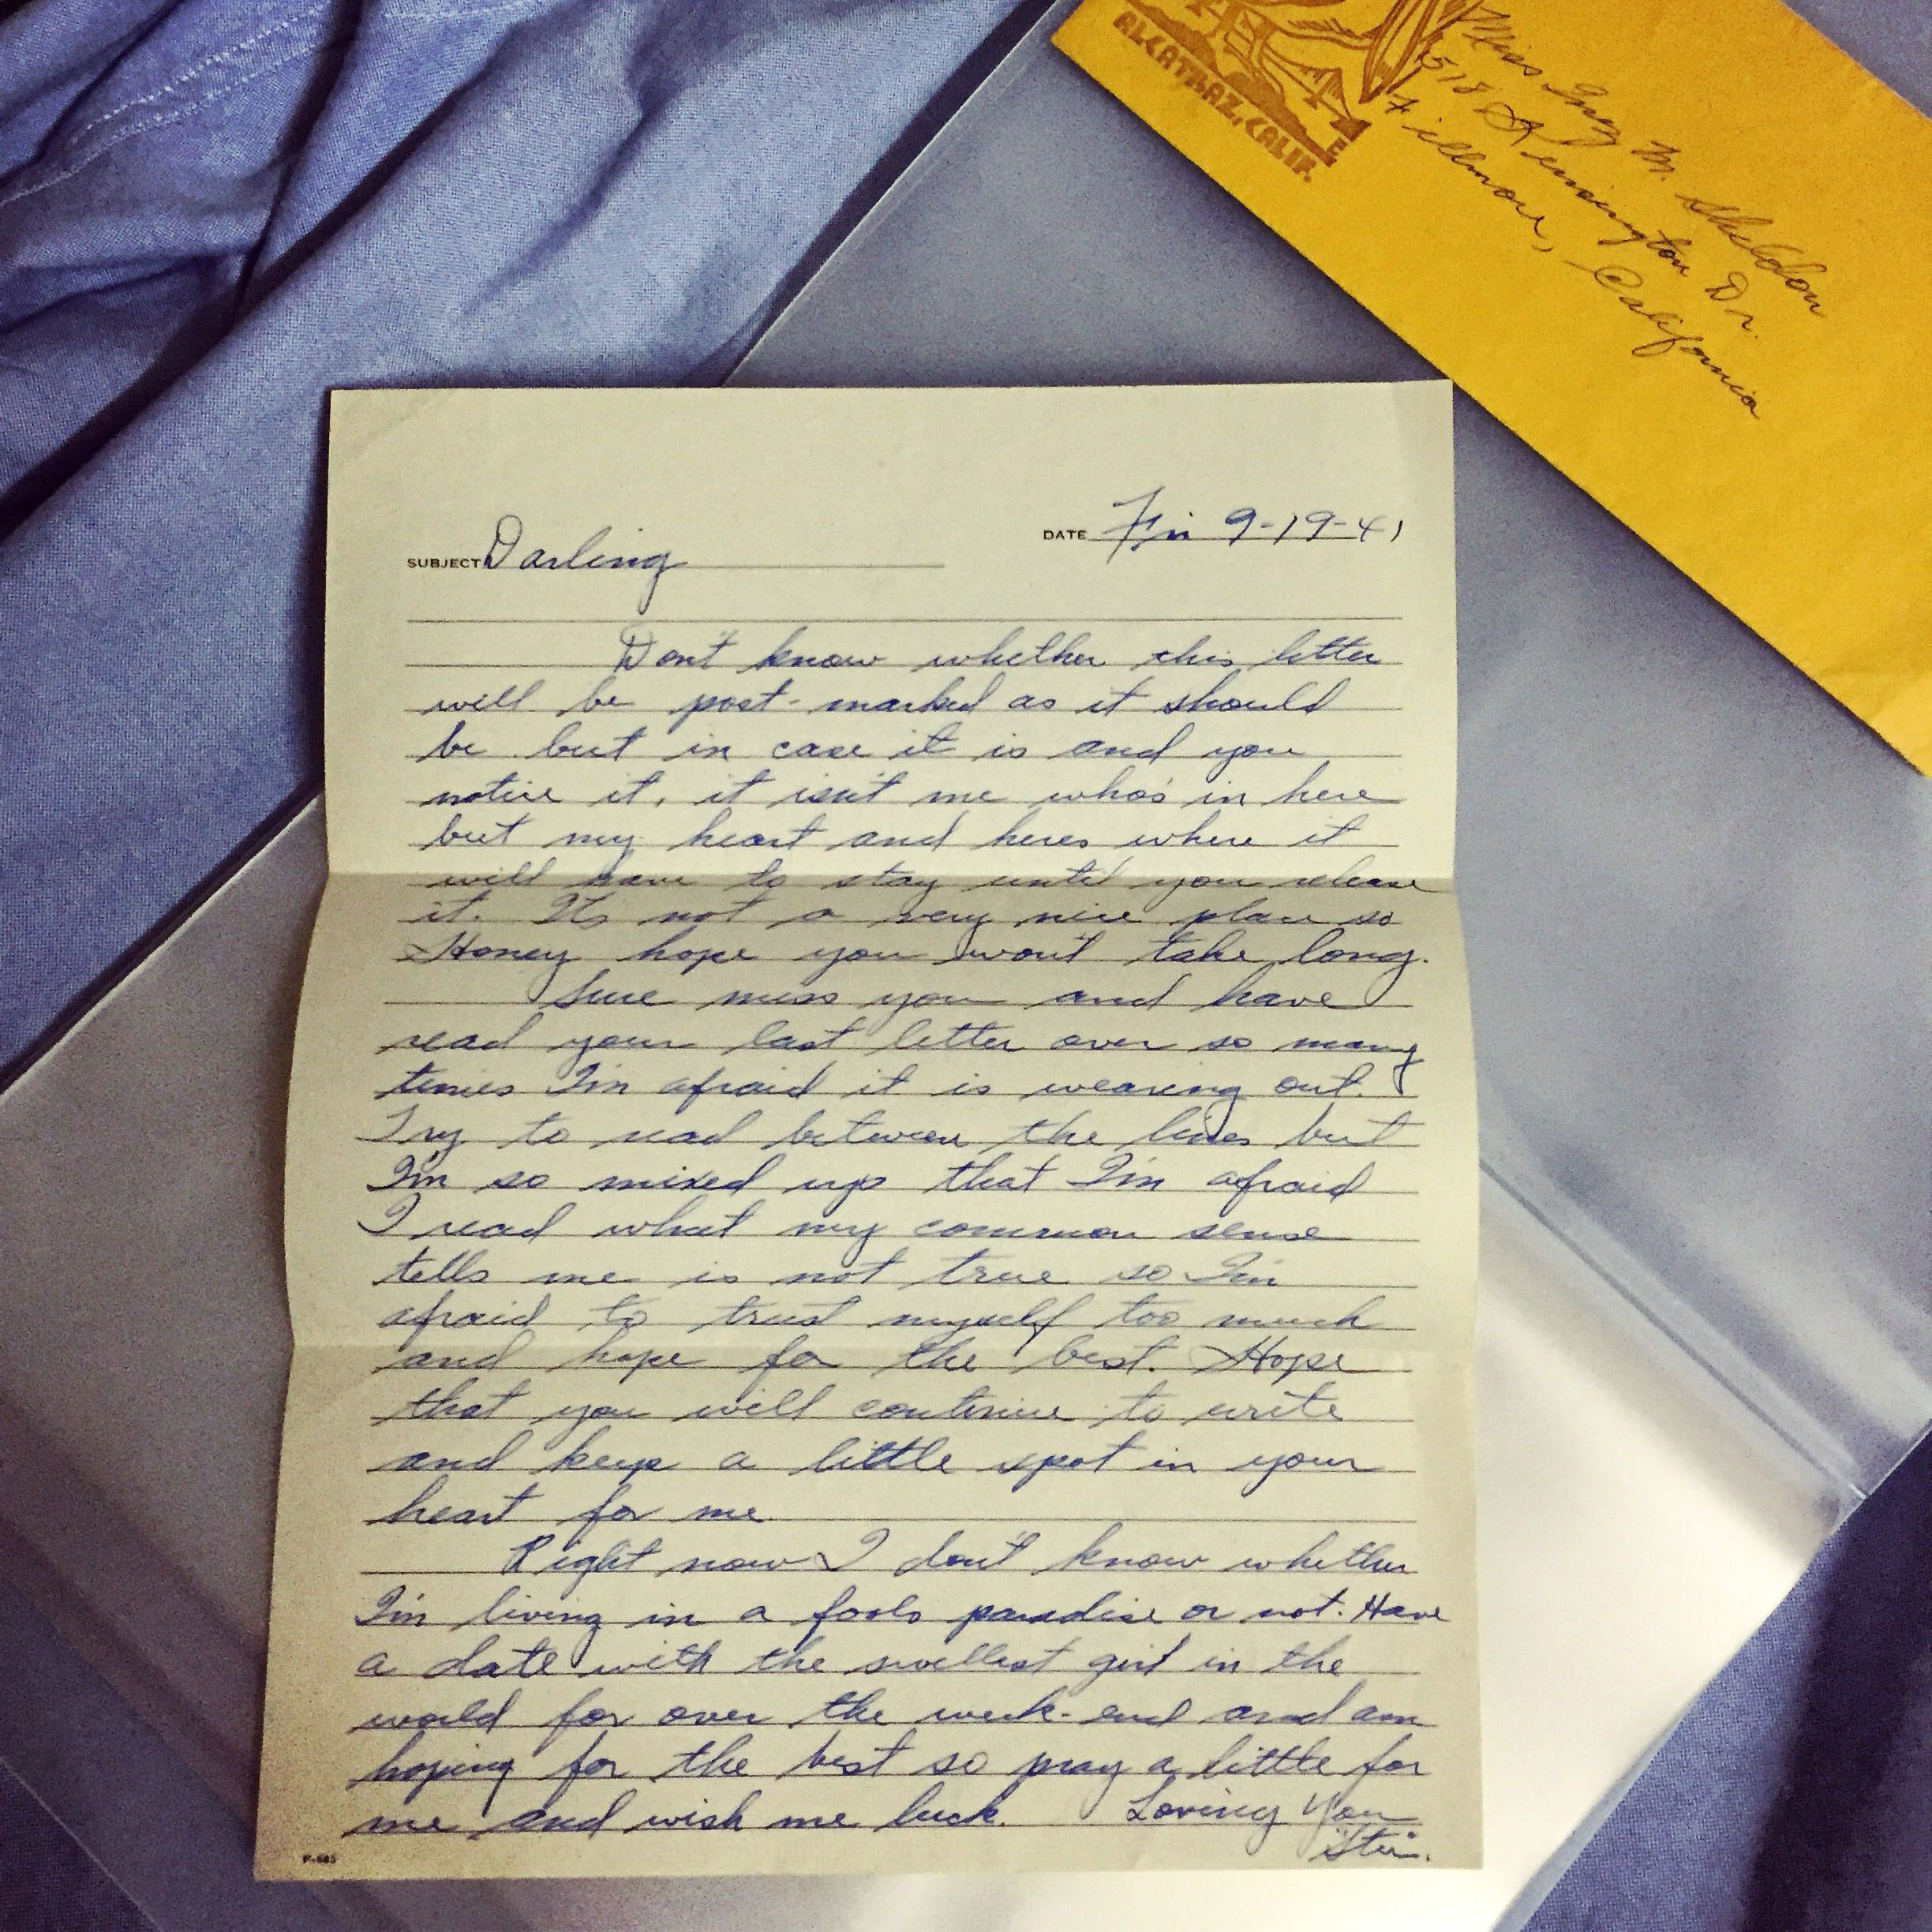 ALCATRAZ, CALIF.
Miss Inez M. Sheldon
518 Kensington Dr.
Fillmore, California
DATE Fri 9-19-41
SUBJECT Darling
Don't know whether this letter
will be post-marked as it should
be but in case it is and you
notice it, it isn't me who's in here
but my heart and heres where it
will have to stay until you release
it. Its not a very nice place so
Honey hope you won't take long.
Sure miss you and have
read your last letter over so many
times I'm afraid it is wearing out.
Try to read between the lines but
I'm so mixed up that I'm afraid
I read what my common sense
tells me is not true so I'm
afraid to trust myself too much
and hope for the best. Hope
that you will continue to write
and keep a little spot in your
heart for me
Right now I don't know whether
I'm living in a fools paradise or not. Have
a date with the swellest girl in the
world for over the week-end and am
hoping for the best so pray a little for
me and wish me luck. Loving You
"Stu".